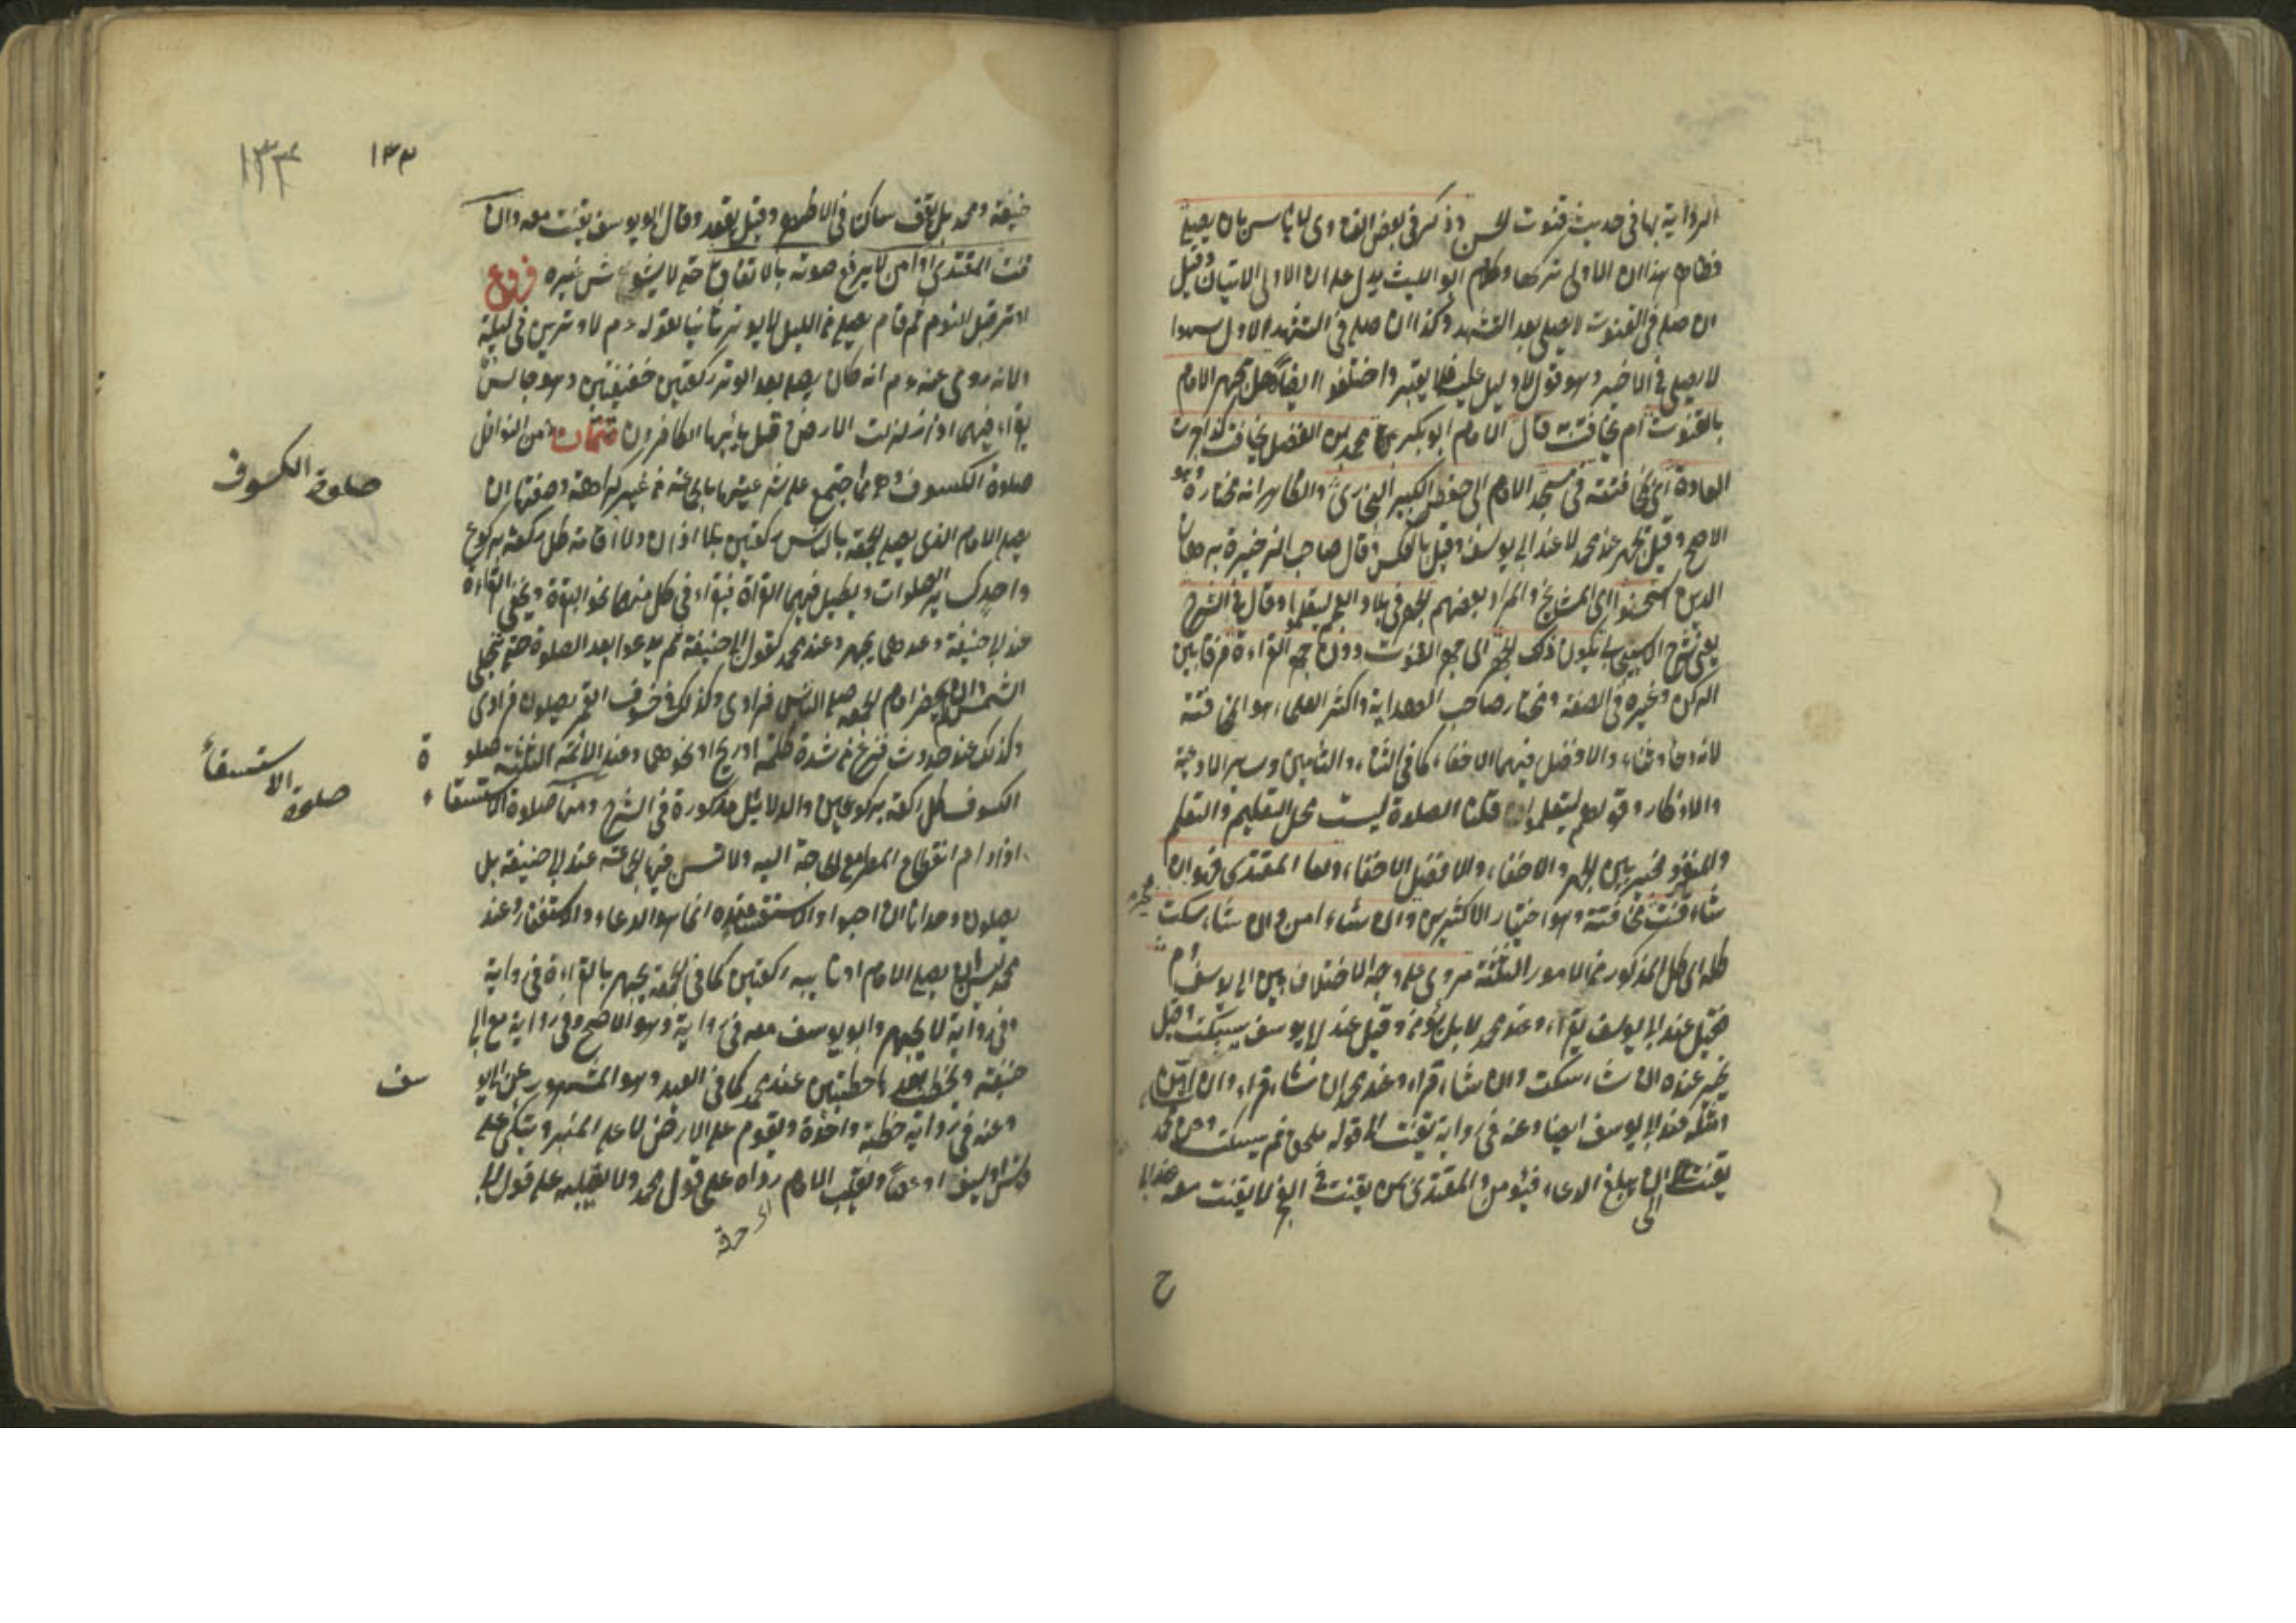 الرواية بها في حديث قنوت الحسن وذكر في بعض الفتاوى لا بأس بان يصلي
وظاهر هذا ان الاولى تركها وكلام ابو الليث يدل على ان الاولى الاتيان وقيل
ان صلى في القنوت لا يصلي بعد التشهد وكذا ان صلى في التشهد الاول سهوا
لا يصلي في الاخير وهو قول لا دليل عليه فلا يعتبر واختلفوا ايضا هل يجهر الامام
بالقنوت ام يخافت به قال الامام ابو بكر محمد بن الفضل يخافت كذا جرت
العادة اي بمخافتته في مسجد الامام ابي حفص الكبير البخاري والظاهر انه مختاره وهو
الاصح وقيل يجهر عند محمد لا عند ابي يوسف وقيل بالعكس وقال صاحب الذخيرة برهان
الدين استحسنوا اي المشايخ والمراد بعضهم الجهر في بلاد العجم ليتعلموا وقال في الشرح
يعني شرح الاسبيجابي يكون ذلك الجهر اي جهر القنوت دون جهر القراءة فرقا بين
الركن وغيره في الصفة ومختار صاحب الهداية واكثر العلماء هو المخافتة
لانه دعاء وثناء والافضل فيهما الاخفاء كما في الثناء والتأمين وسائر الادعية
والاذكار وقولهم ليتعلموا قلنا الصلوة ليست محل التعليم والتعلم
والمنفرد مخير بين الجهر والاخفاء والافضل الاخفاء واما المقتدي فهو ان
شاء قنت مخافتة وهو اختيار الاكثرين وان شاء امن وان شاء سكت
كله اي كل المذكور من الامور الثلثة مروي على وجه الاختلاف بين ابي يوسف ومحمد
فقيل عند ابي يوسف يقرأ وعند محمد لا بل يؤمن وقيل عند ابي يوسف يسكت وقيل
يخير عنده ان شاء سكت وان شاء قرأ وعند محمد ان شاء قرأ وان شاء امن
ومثله عند ابي يوسف ايضا وعنه في رواية يقنت الى قوله ملحق ثم يسكت وعن محمد
يقنت الى ان يبلغ الدعاء فيؤمن والمقتدي بمن يقنت في الفجر لا يقنت معه عند ابي
ح
١٣٣
١٣٤
حنيفة ومحمد بل يقف ساكتا في الاظهر وقيل يقعد وقال ابو يوسف يقنت معه وان
قنت المقتدي او امن لا يرفع صوته بالاتفاق حتى لا يشوش غيره فروع
اوتر قبل النوم ثم قام يصلي من الليل لا يوتر ثانيا لقوله عم لا وترين في ليلة
ولانه روي عنه عم انه كان يصلي بعد الوتر ركعتين خفيفتين وهو جالس
يقرأ فيهما اذا زلزلت الارض وقل يا ايها الكافرون تتمات من النوافل
صلوة الكسوف وهي مما اجتمع على شرعيتها بالجماعة من غير كراهة وصفتها ان
صلوة الكسوف
يصلي الامام الذي يصلي الجمعة بالناس ركعتين بلا اذان ولا اقامة كل ركعة بركوع
واحد كسائر الصلوات ويطيل فيهما القراة فيقرأ في كل منهما نحو البقرة ويخفي القراءة
عند ابي حنيفة وعندهما يجهر وعند محمد كقول ابي حنيفة ثم يدعوا بعد الصلوة حتى تنجلي
الشمس وان لم يحضر امام الجمعة صلى الناس فرادى وكذلك في خسوف القمر يصلون فرادى
وكذلك عند حدوث فزع من شدة ظلمة او ريح او نحوهما وعند الائمة الثلثة صلوة
الكسوف كل ركعة بركوعين والدلائل مذكورة في الشرح ومنها صلاوة الاستسقاء
صلوة الاستسقاء
اذا دام انقطاع المطر مع الحاجة اليه ولا تسن فيها الجماعة عند ابي حنيفة بل
يصلون وحدانا ان احبوا والاستسقاء عنده انما هو الدعاء والاستغفار وعند
محمد يسن ان يصلي الامام او نائبه ركعتين كما في الجمعة يجهر بالقراءة في رواية
وفي رواية لا يجهر وابو يوسف معه في رواية وهو الاصح وفي رواية مع ابي
حنيفة ويخطب بعدها خطبتين عند محمد كما في العيد وهو المشهور عن ابي يوسف
وعنه في رواية خطبة واحدة ويقوم على الارض لا على المنبر ويتكئ على
قوس او سيف او عصا ويقلب الامام رداه على قول محمد ولا يقلبه على قول ابي